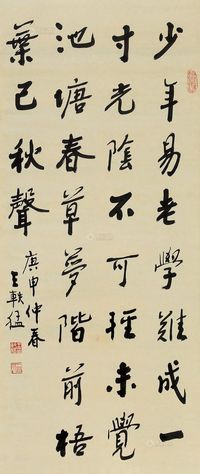 少年易老學難成一
寸光陰不可輕未覺
池塘春草夢階前梧
葉已秋聲
庚申仲春
王軼猛